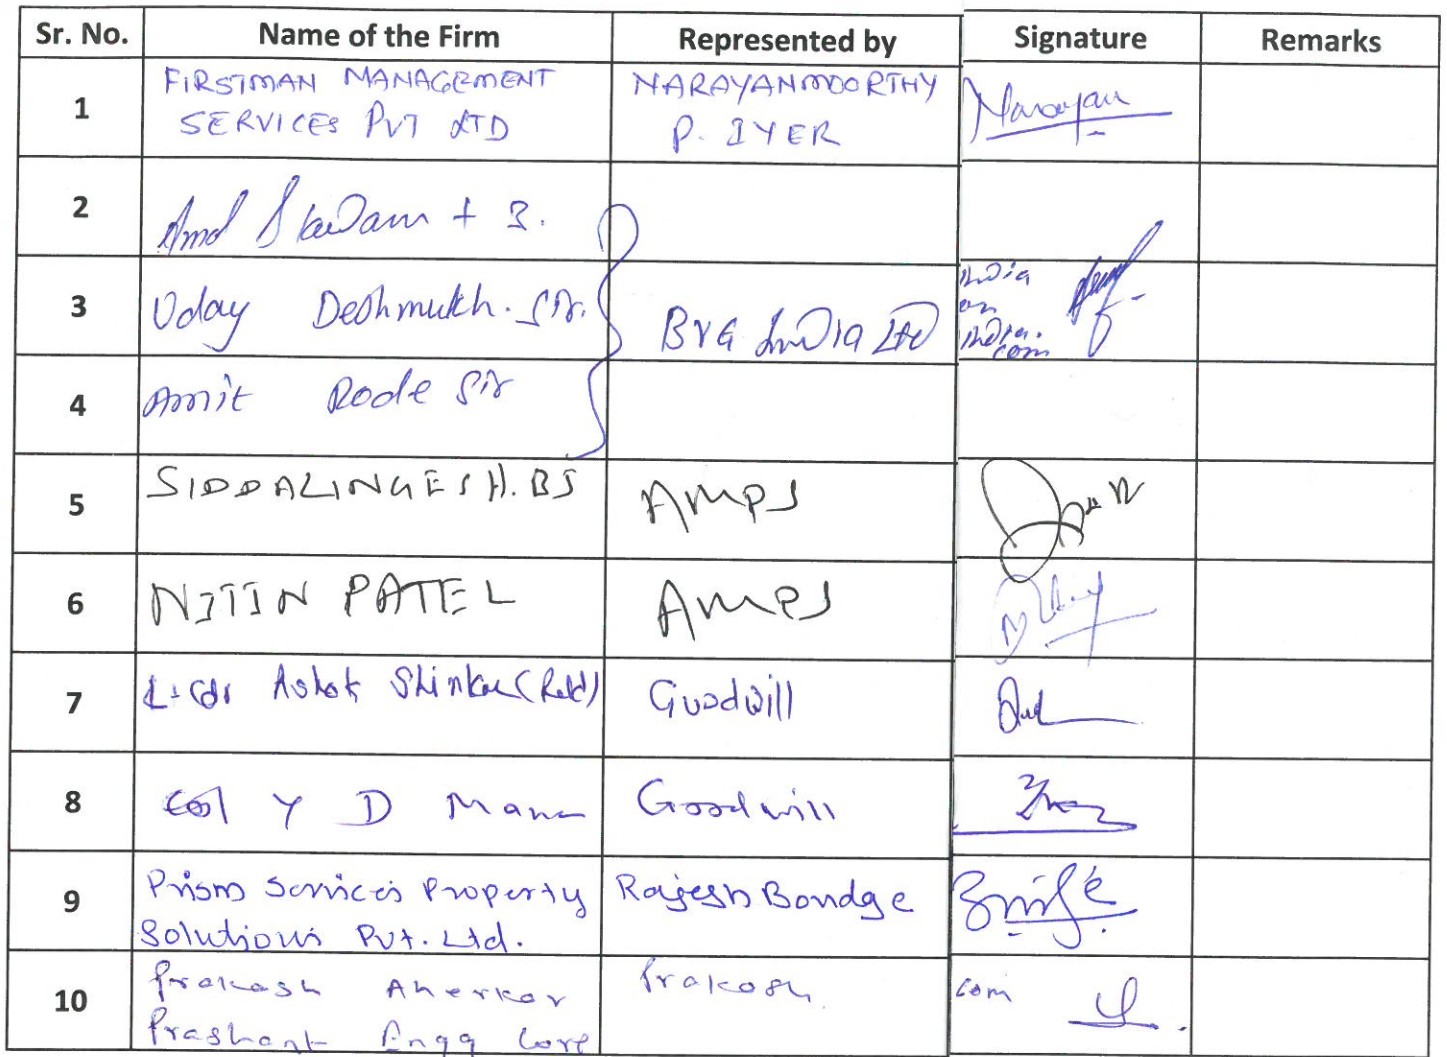 Sr. No. Name of the Firm Represented by Signature Remarks
1 FIRSTMAN MANAGEMENT SERVICES PVT LTD NARAYANMOORTHY P. IYER Narayan
2 Kadam + 3.
3 Uday Deshmukh. Sir. BVG India Ltd India
India.
com
4 Amit Rode Sir
5 SIDDALINGESH. BS AMPS
6 NITIN PATEL AMPS
7 Lt Cdr Ashok Shinkar (Retd) Goodwill
8 Col Y D Mane Goodwill
9 Prism Services Property Solutions Pvt. Ltd. Rajesh Bondge
10 Prakash Aherkar Prakash com
Prashant Engg Corp